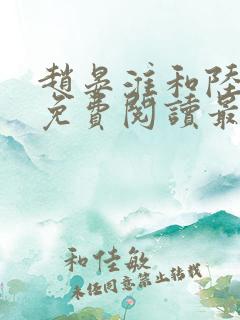 趙晏淮和陸
免費閱讀最
和佳敏
未经同意禁止转载